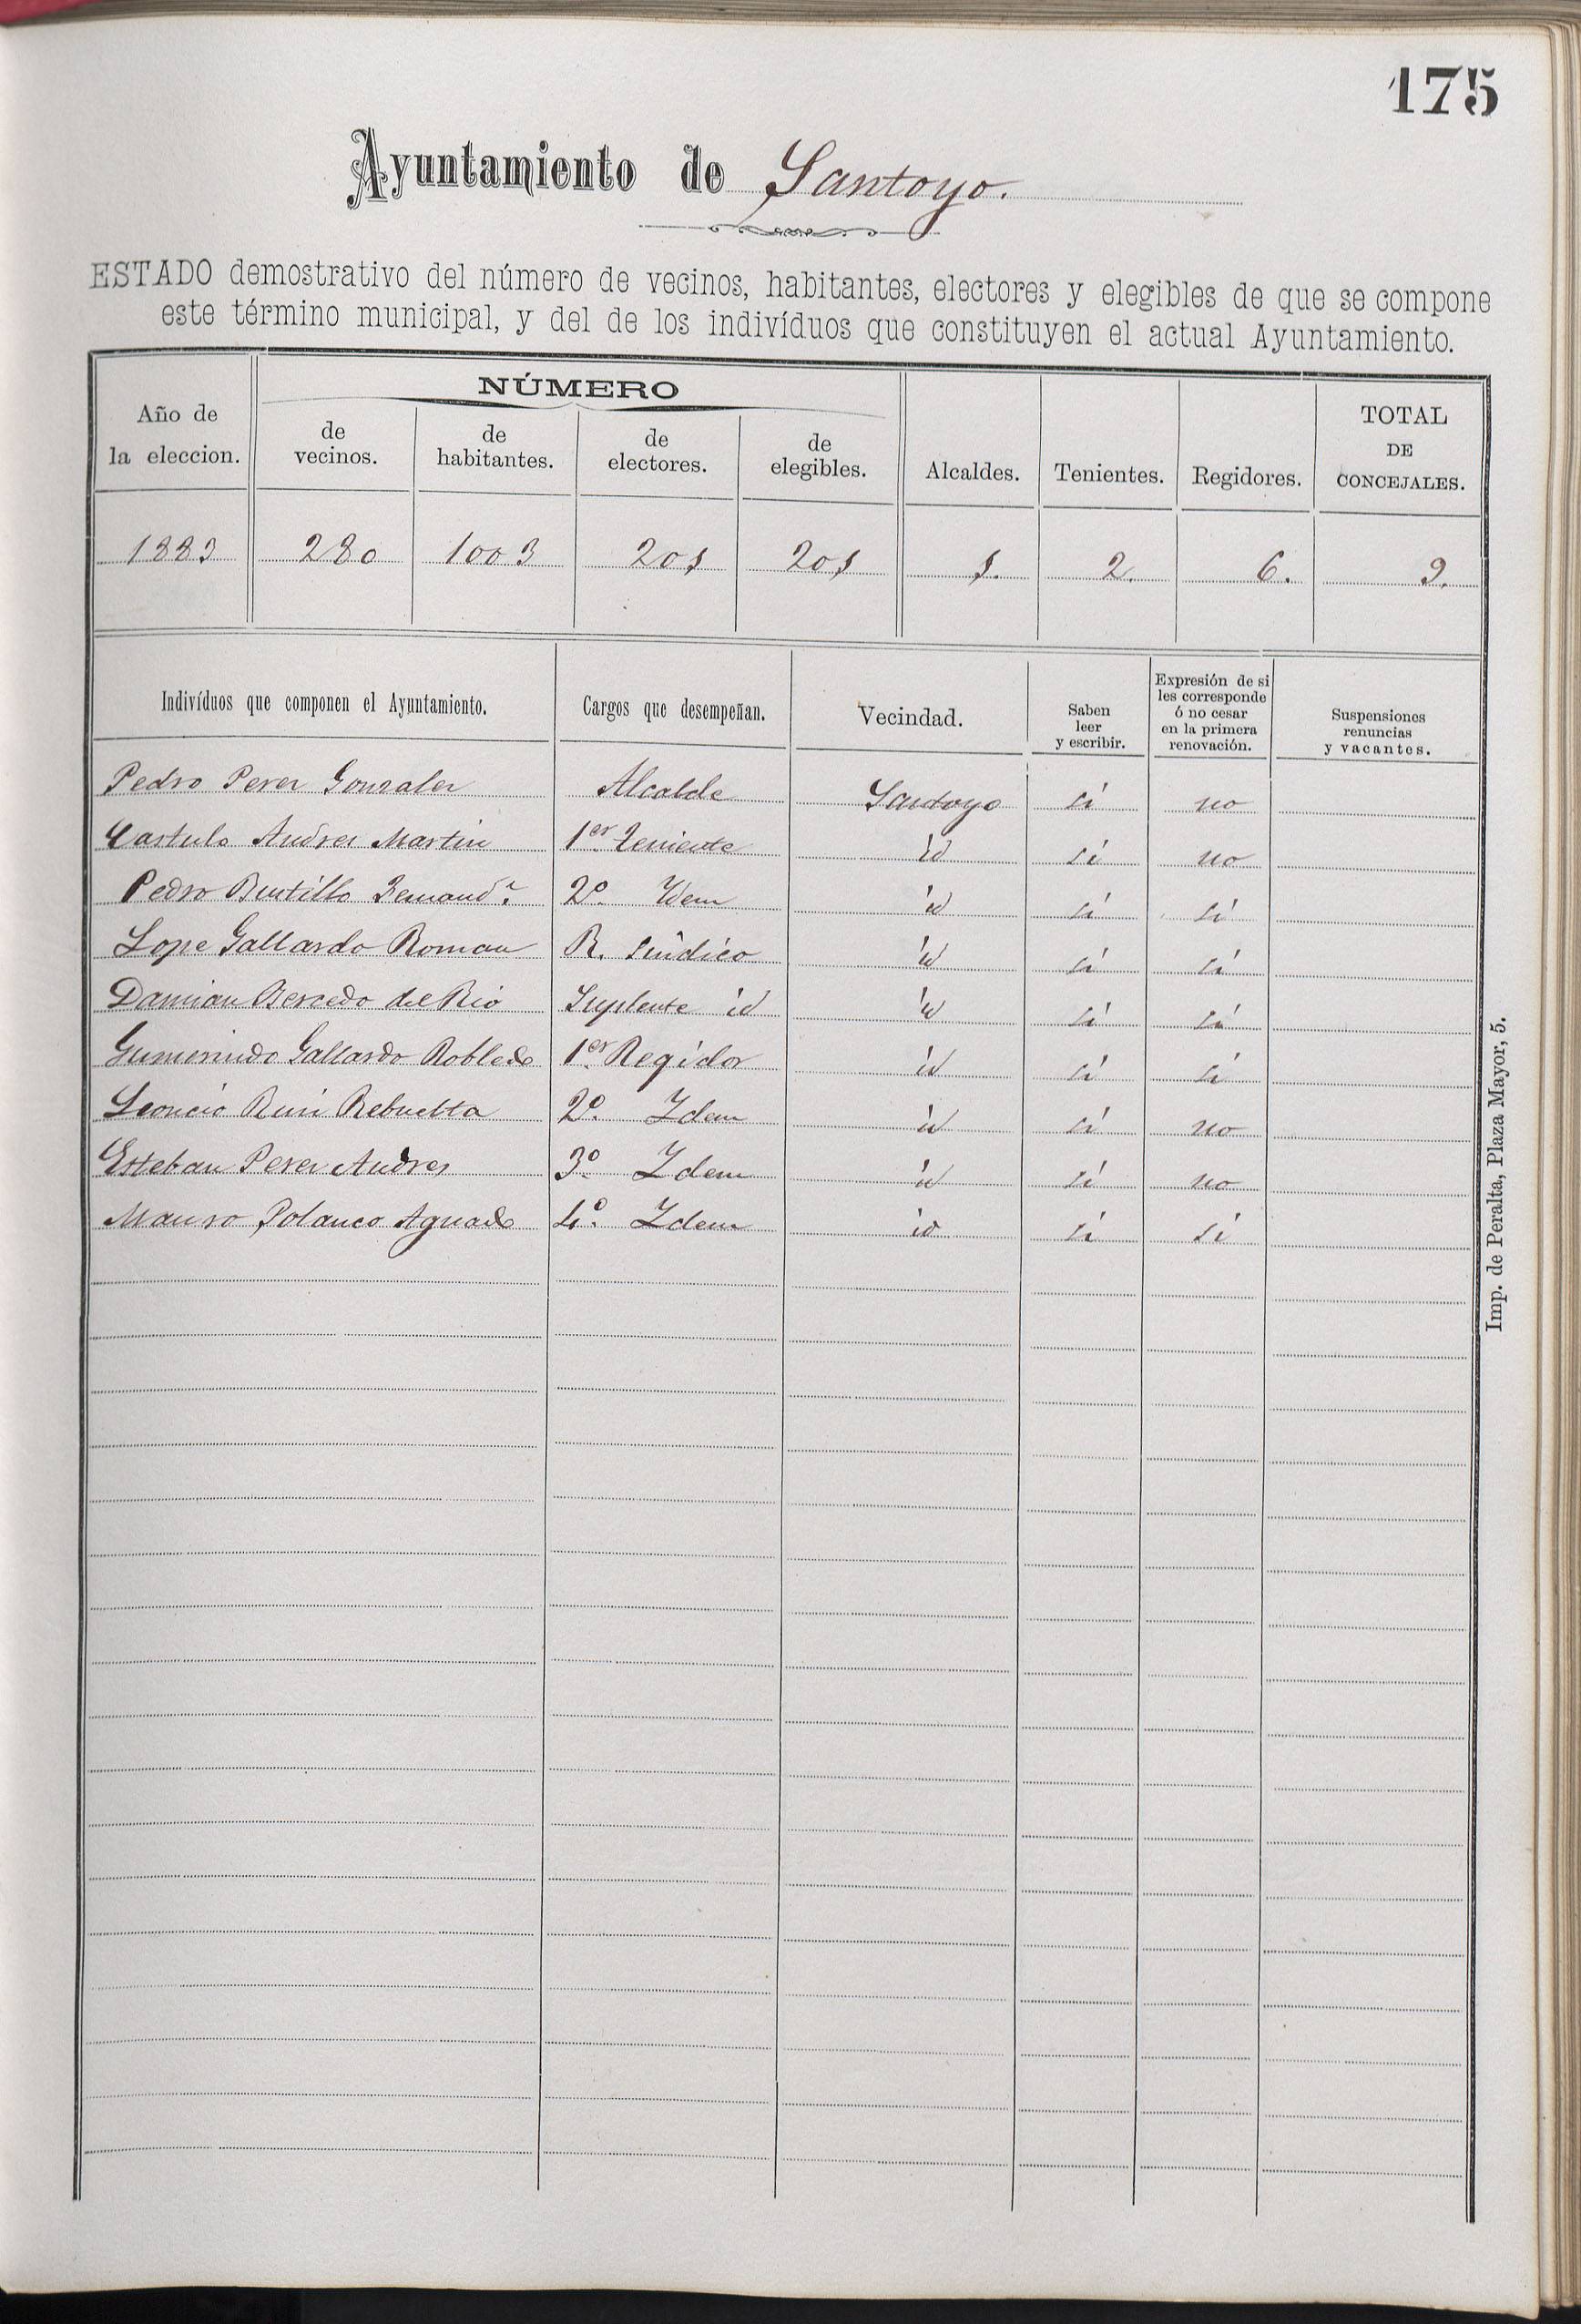 175
Ayuntamiento de Santoyo.
ESTADO demostrativo del número de vecinos, habitantes, electores y elegibles de que se compone
este término municipal, y del de los indivíduos que constituyen el actual Ayuntamiento.
Año de la eleccion.
NÚMERO
de vecinos.
de habitantes.
de electores.
de elegibles.
Alcaldes.
Tenientes.
Regidores.
TOTAL DE CONCEJALES.
1883 280 1003 201 201 1. 2. 6. 9.
Indivíduos que componen el Ayuntamiento.
Cargos que desempeñan.
Vecindad.
Saben leer y escribir.
Expresión de si les corresponde ó no cesar en la primera renovación.
Suspensiones renuncias y vacantes.
Pedro Perez Gonzalez Alcalde Santoyo si no
Castulo Andres Martin 1er. teniente id si no
Pedro 2º Idem id si si
Lope Gallardo Roman R. sindico id si si
Damian del Rio Suplente id id si si
Gumersindo Gallardo Robledo 1er. Regidor id si si
Leoncio Ruiz Rebuelta 2º. Idem id si no
Esteban Perez Andres 3º Idem id si no
Mauro Polanco Aguado 4º. Idem id si si
Imp. de Peralta, Plaza Mayor, 5.